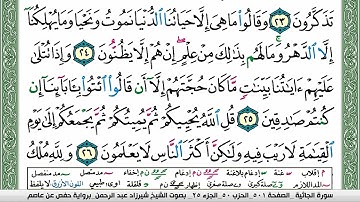 تَذَكَّرُونَ ٢٣ وَقَالُوا۟ مَا هِىَ إِلَّا حَيَاتُنَا ٱلدُّنْيَا نَمُوتُ وَنَحْيَا وَمَا يُهْلِكُنَآ
إِلَّا ٱلدَّهْرُ وَمَا لَهُم بِذَٰلِكَ مِنْ عِلْمٍ إِنْ هُمْ إِلَّا يَظُنُّونَ ٢٤ وَإِذَا تُتْلَىٰ
عَلَيْهِمْ ءَايَٰتُنَا بَيِّنَٰتٍ مَّا كَانَ حُجَّتَهُمْ إِلَّآ أَن قَالُوا۟ ٱئْتُوا۟ بِـَٔابَآئِنَآ إِن
كُنتُمْ صَٰدِقِينَ ٢٥ قُلِ ٱللَّهُ يُحْيِيكُمْ ثُمَّ يُمِيتُكُمْ ثُمَّ يَجْمَعُكُمْ إِلَىٰ يَوْمِ
ٱلْقِيَٰمَةِ لَا رَيْبَ فِيهِ وَلَٰكِنَّ أَكْثَرَ ٱلنَّاسِ لَا يَعْلَمُونَ ٢٦ وَلِلَّهِ مُلْكُ
سورة الجاثية - الصفحة ٥٠١ - الحزب ٥٠ - الجزء ٢٥ - بصوت الشيخ شيرزاد عبد الرحمن - برواية حفص عن عاصم